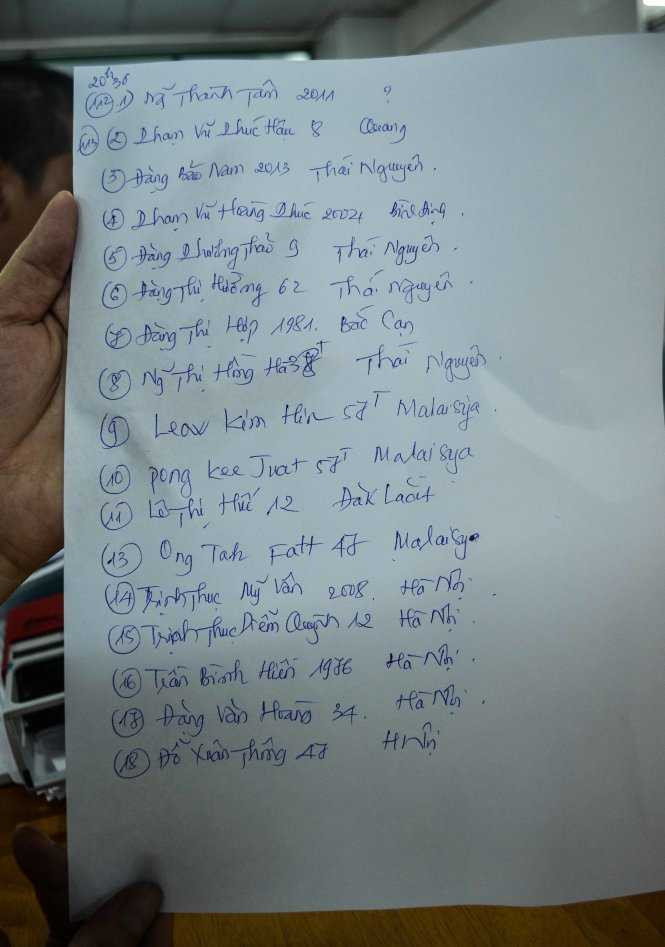 20h36
(112) 1) Ng~ Thanh Tâm 2011 ?
(113) (2) Phạm Vũ Phúc Hậu 8 Quang
(3) Đàng Bảo Nam 2013 Thái Nguyên.
(4) Phạm Vũ Hoàng Phúc 2002 Bình Định.
(5) Đàng Phương Thảo 9 Thái Nguyên.
(6) Đàng Thị Hường 62 Thái Nguyên.
(7) Đàng Thị Hợp 1981. Bắc Cạn
(8) Ng~ Thị Hồng Hà 38T Thái Nguyên.
(9) Leow Kim Hin 57T Malaisya.
(10) Pong Kee Juat 57T Malaisya
(11) Lê Thị Huế 12 Đăk
(13) Ong Tah Fatt 47 Malaisya
(14) Trịnh Thục Mỹ Vân 2008. Hà Nội.
(15) Trịnh Thục Diễm Quỳnh 12 Hà Nội.
(16) Trần Bình Hiền 1976 Hà Nội.
(17) Đàng Văn Hoàng 34. Hà Nội.
(18) Đỗ Xuân Thông 47 H Nội